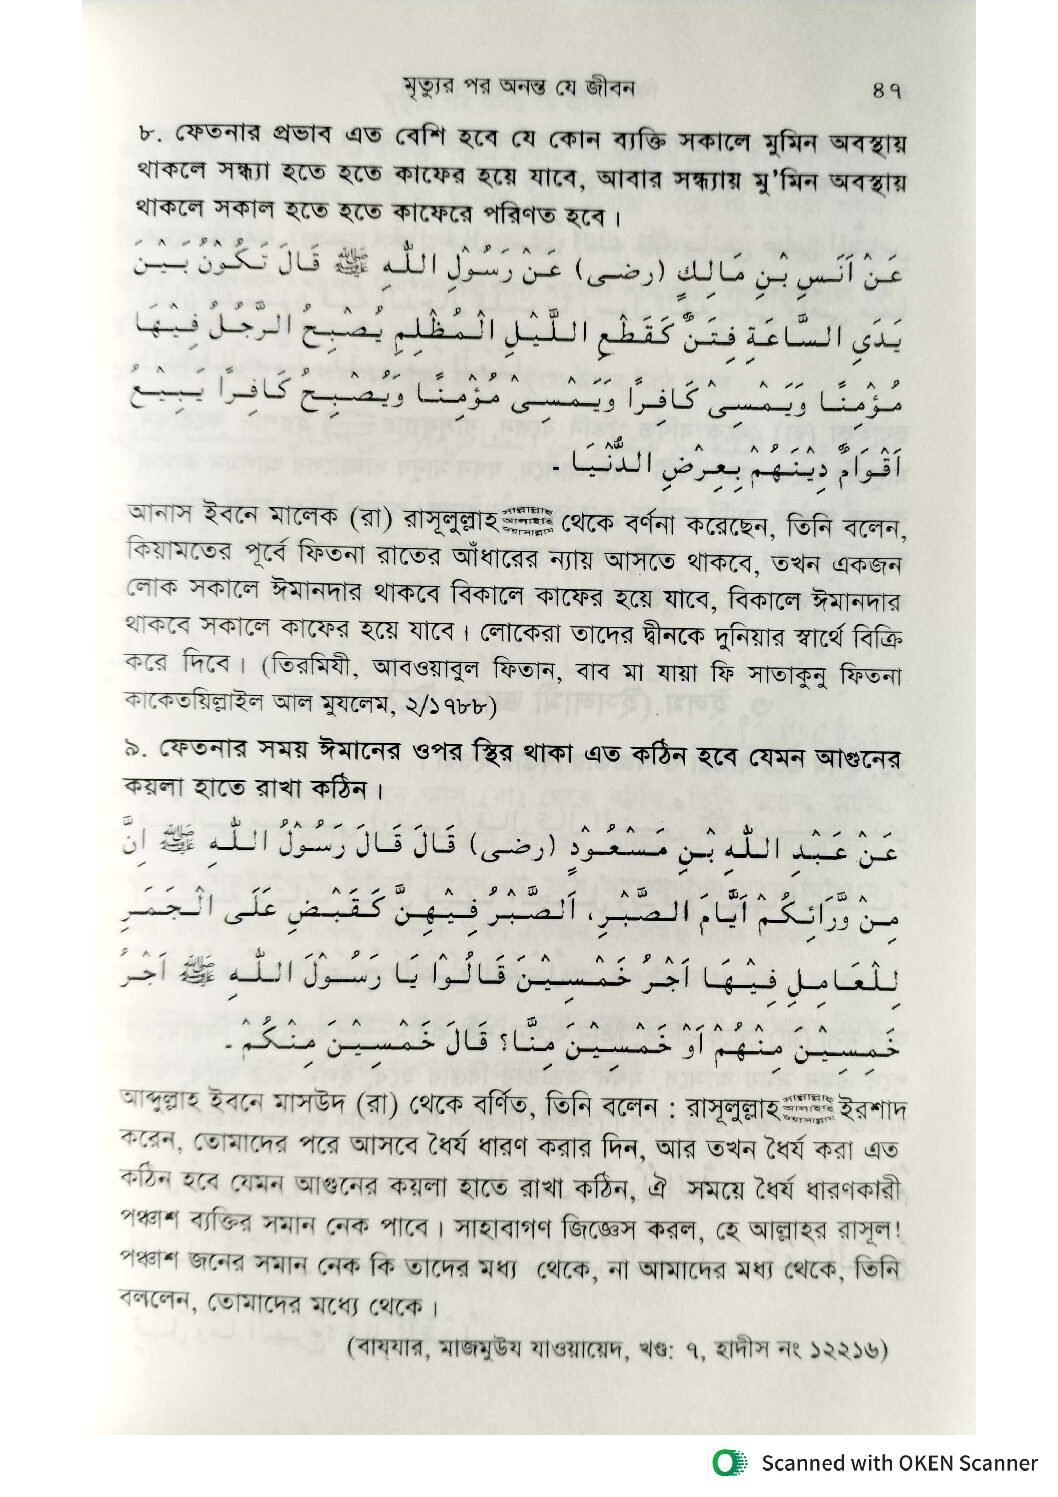 মৃত্যুর পর অনন্ত যে জীবন ৪৭
৮. ফেতনার প্রভাব এত বেশি হবে যে কোন ব্যক্তি সকালে মুমিন অবস্থায়
থাকলে সন্ধ্যা হতে হতে কাফের হয়ে যাবে, আবার সন্ধ্যায় মু'মিন অবস্থায়
থাকলে সকাল হতে হতে কাফেরে পরিণত হবে।
عَنْ اَنَسِ بْنِ مَالِكٍ (رضى) عَنْ رَسُوْلِ اللّٰهِ ﷺ قَالَ تَكُوْنُ بَيْنَ
يَدَىِ السَّاعَةِ فِتَنٌ كَقَطْعِ اللَّيْلِ الْمُظْلِمِ يُصْبِحُ الرَّجُلُ فِيْهَا
مُؤْمِنًا وَيَمْسِىْ كَافِرًا وَيَمْسِىْ مُؤْمِنًا وَيُصْبِحُ كَافِرًا يَبِيْعُ
اَقْوَامٌ دِيْنَهُمْ بِعِرْضِ الدُّنْيَا ـ
আনাস ইবনে মালেক (রা) রাসূলুল্লাহ সাল্লাল্লাহু আলাইহি ওয়াসাল্লাম থেকে বর্ণনা করেছেন, তিনি বলেন,
কিয়ামতের পূর্বে ফিতনা রাতের আঁধারের ন্যায় আসতে থাকবে, তখন একজন
লোক সকালে ঈমানদার থাকবে বিকালে কাফের হয়ে যাবে, বিকালে ঈমানদার
থাকবে সকালে কাফের হয়ে যাবে। লোকেরা তাদের দ্বীনকে দুনিয়ার স্বার্থে বিক্রি
করে দিবে। (তিরমিযী, আবওয়াবুল ফিতান, বাব মা যায়া ফি সাতাকুনু ফিতনা
কাকেতয়িল্লাইল আল মুযলেম, ২/১৭৮৮)
৯. ফেতনার সময় ঈমানের ওপর স্থির থাকা এত কঠিন হবে যেমন আগুনের
কয়লা হাতে রাখা কঠিন।
عَنْ عَبْدِ اللّٰهِ بْنِ مَسْعُوْدٍ (رضى) قَالَ قَالَ رَسُوْلُ اللّٰهِ ﷺ اِنَّ
مِنْ وَّرَائِكُمْ اَيَّامَ الصَّبْرِ، اَلصَّبْرُ فِيْهِنَّ كَقَبْضِ عَلَى الْجَمَرِ
لِلْعَامِلِ فِيْهَا اَجْرُ خَمْسِيْنَ قَالُوْا يَا رَسُوْلَ اللّٰهِ ﷺ اَجْرُ
خَمِسِيْنَ مِنْهُمْ اَوْ خَمْسِيْنَ مِنَّا؟ قَالَ خَمْسِيْنَ مِنْكُمْ ـ
আব্দুল্লাহ ইবনে মাসউদ (রা) থেকে বর্ণিত, তিনি বলেন : রাসূলুল্লাহ সাল্লাল্লাহু আলাইহি ওয়াসাল্লাম ইরশাদ
করেন, তোমাদের পরে আসবে ধৈর্য ধারণ করার দিন, আর তখন ধৈর্য করা এত
কঠিন হবে যেমন আগুনের কয়লা হাতে রাখা কঠিন, ঐ সময়ে ধৈর্য ধারণকারী
পঞ্চাশ ব্যক্তির সমান নেক পাবে। সাহাবাগণ জিজ্ঞেস করল, হে আল্লাহর রাসূল!
পঞ্চাশ জনের সমান নেক কি তাদের মধ্য থেকে, না আমাদের মধ্য থেকে, তিনি
বললেন, তোমাদের মধ্যে থেকে।
(বায্‌যার, মাজমুউয যাওয়ায়েদ, খণ্ড: ৭, হাদীস নং ১২২১৬)
Scanned with OKEN Scanner